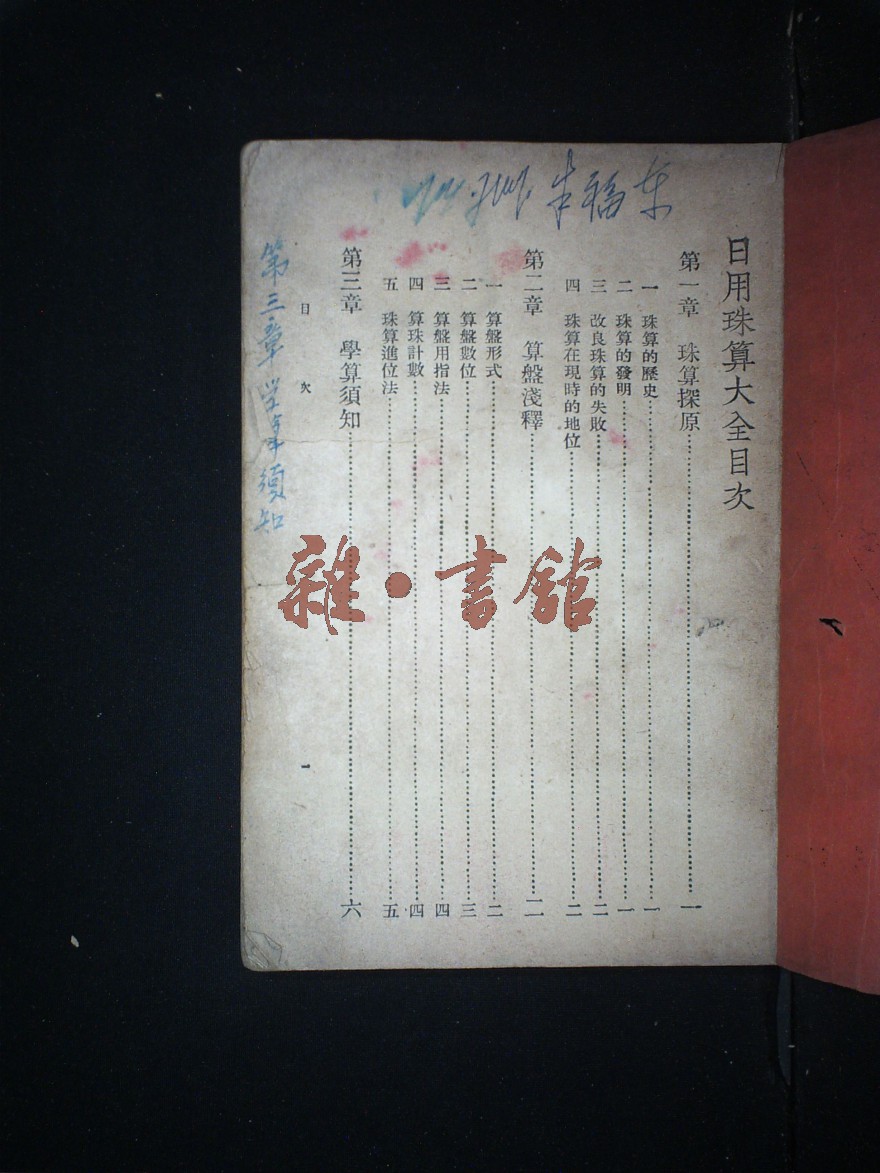 日用珠算大全目次
第一章 珠算探原 一
一 珠算的歷史 一
二 珠算的發明 一
三 改良珠算的失敗 二
四 珠算在現時的地位 二
第二章 算盤淺釋 二
一 算盤形式 二
二 算盤數位 三
三 算盤用指法 四
四 算珠計數 四
五 珠算進位法 五
第三章 學算須知 六
目次 一
第三章 学算須知
雜·書館